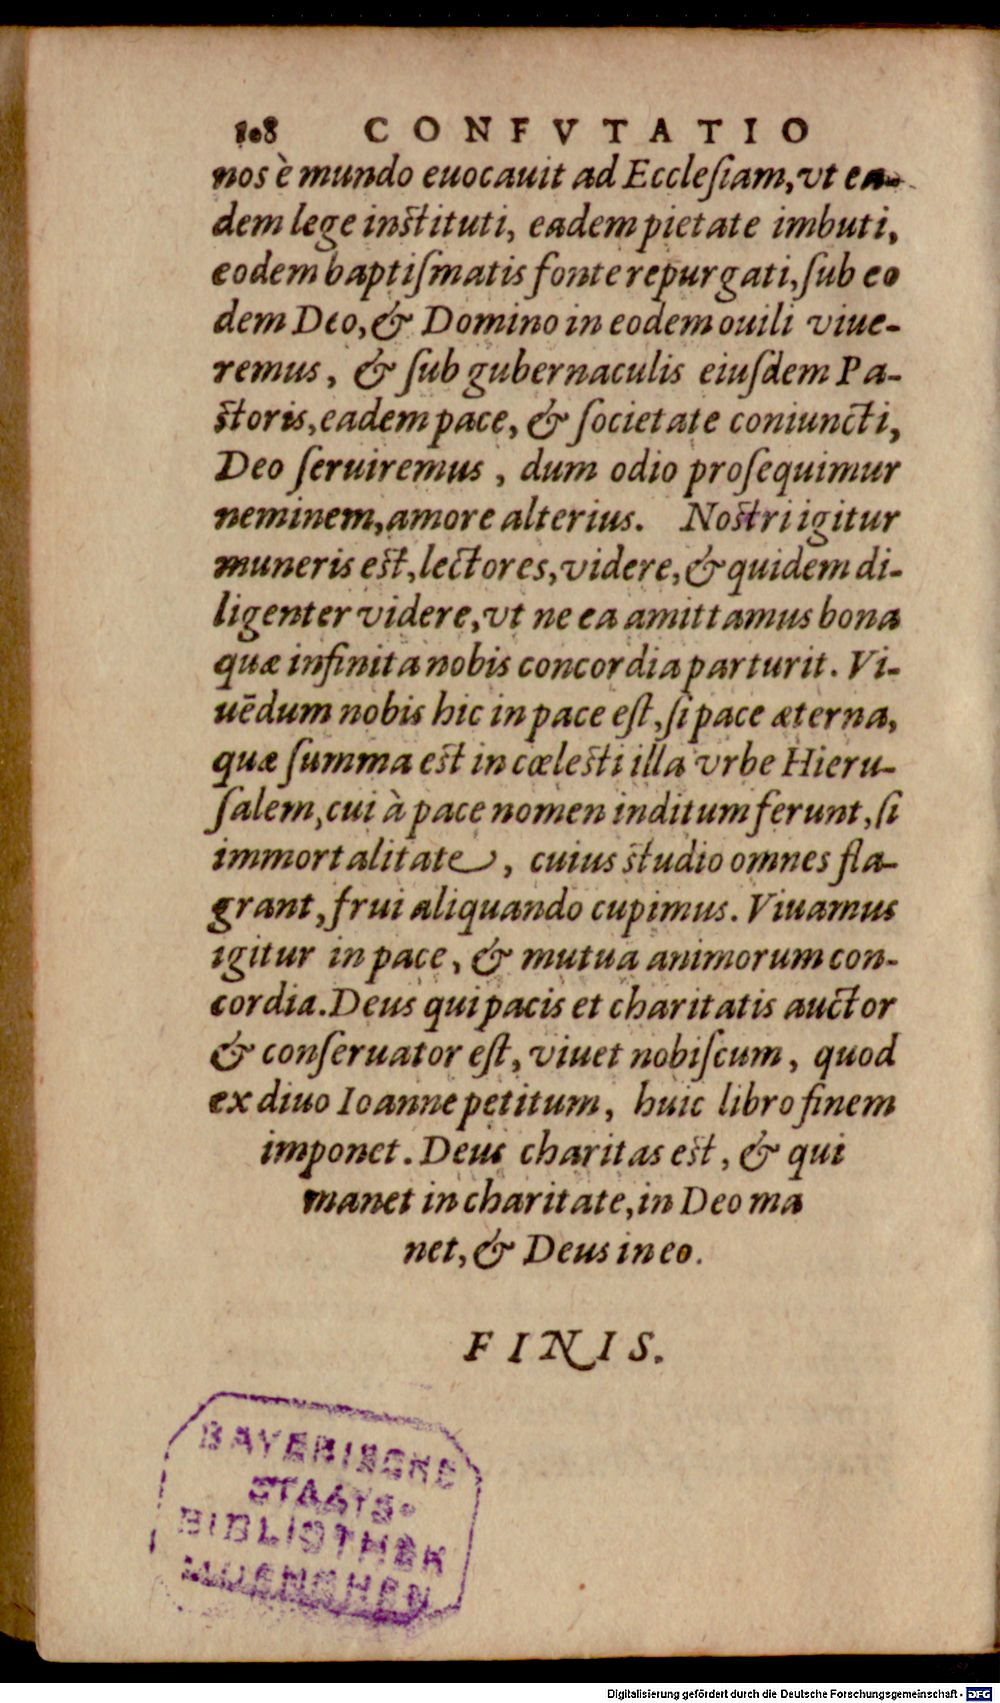 108 CONFVTATIO
nos è mundo euocauit ad Eccleſiam, vt ea-
dem lege inſtituti, eadem pietate imbuti,
eodem baptiſmatis fonte repurgati, ſub eo
dem Deo, & Domino in eodem ouili viue-
remus, & ſub gubernaculis eiuſdem Pa-
ſtoris, eadem pace, & ſocietate coniuncti,
Deo ſeruiremus, dum odio proſequimur
neminem, amore alterius. Noſtri igitur
muneris eſt, lectores, videre, & quidem di-
ligenter videre, vt ne ea amittamus bona
quæ infinita nobis concordia parturit. Vi-
uēdum nobis hic in pace eſt, ſi pace æterna,
quæ ſumma eſt in cœleſti illa vrbe Hieru-
ſalem, cui à pace nomen inditum ferunt, ſi
immortalitate, cuius ſtudio omnes fla-
grant, frui aliquando cupimus. Viuamus
igitur in pace, & mutua animorum con-
cordia. Deus qui pacis et charitatis auctor
& conſeruator eſt, viuet nobiſcum, quod
ex diuo Ioanne petitum, huic libro finem
imponet. Deus charitas eſt, & qui
manet in charitate, in Deo ma
net, & Deus in eo.
FINIS.
BAYERISCHE
STAATS-
BIBLIOTHEK
MUENCHEN
Digitalisierung gefördert durch die Deutsche Forschungsgemeinschaft - DFG